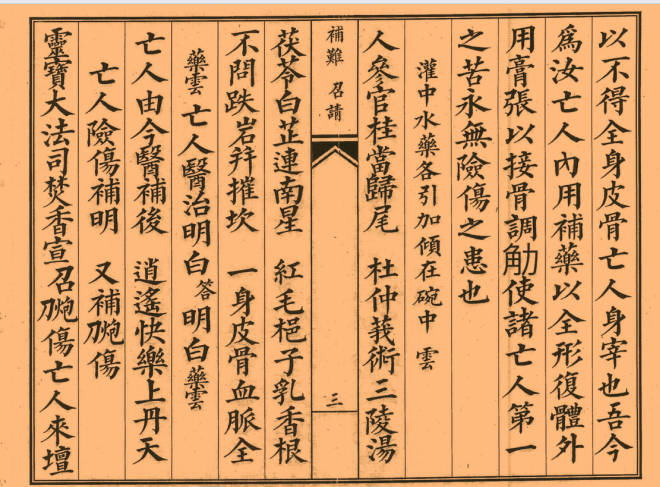 以不得全身皮骨亡人身宰也吾今
爲汝亡人內用補藥以全形復體外
用膏張以接骨調觔使諸亡人第一
之苦永無險傷之患也
灌中水藥各引加傾在碗中 雲
人參官桂當歸尾 杜仲莪術三陵湯
補難 召請 三
茯苓白芷連南星 紅毛子乳香根
不問跌岩并摧坎 一身皮骨血脈全
藥雲 亡人醫治明白 答 明白 藥雲
亡人由今醫補後 逍遙快樂上丹天
亡人險傷補明 又補刀炮傷
靈寶大法司焚香宣召刀炮傷亡人來壇